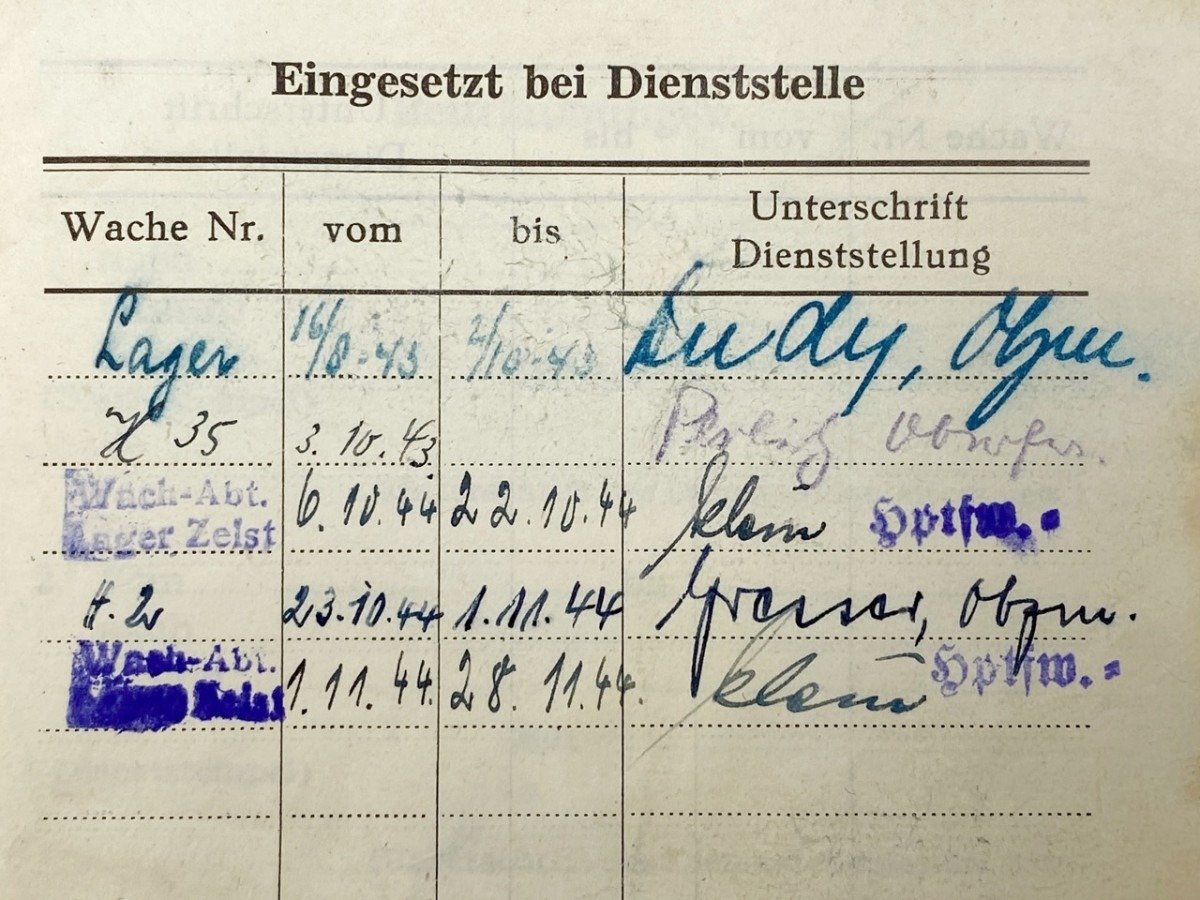 Eingesetzt bei Dienststelle
Wache Nr. vom bis Unterschrift
Dienststellung
Lager 16/8-43 2/10-43
H 35 3.10.43
Wach-Abt.
Lager Zeist 6.10.44 22.10.44 Klein Hptfw.
H. 2 23.10.44 1.11.44
Wach-Abt.
Zeist 1.11.44. 28.11.44. Klein Hptfw.